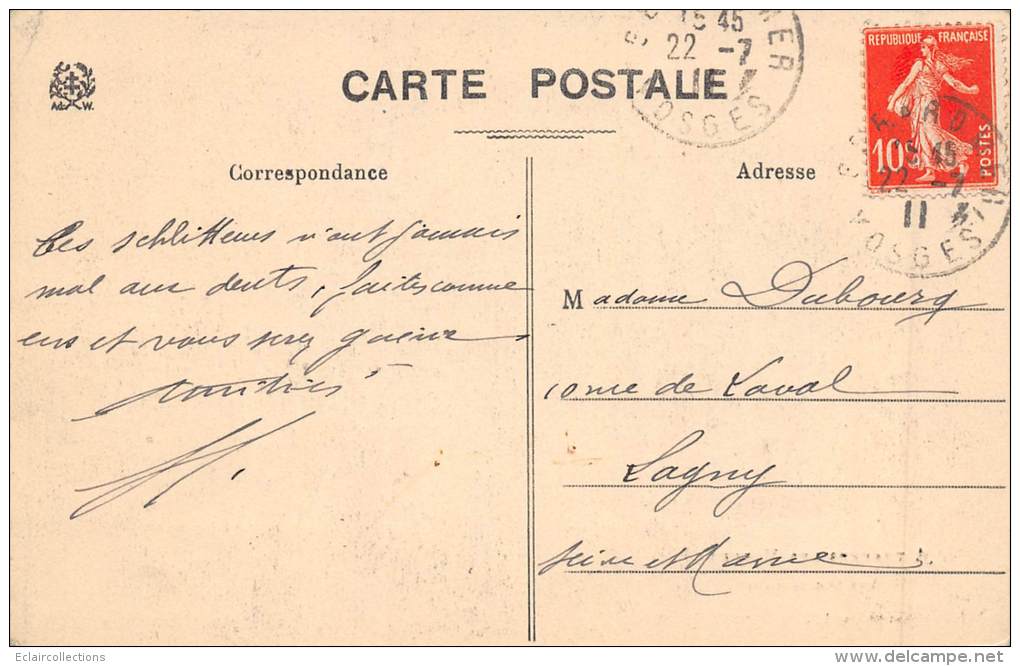 A. W.
CARTE POSTALE
GÉRARDMER
15 45
22 - 7
VOSGES
RÉPUBLIQUE FRANÇAISE
10 c
POSTES
GÉRARDMER
15 45
22 - 7
11
VOSGES
Correspondance
Adresse
Les schlitteurs n'ont jamais
mal aux dents, faites comme
eux et vous serez
Madame Dubourg
10 rue de Laval
Lagny
Seine et Marne
Eclaircollections
www.delcampe.net